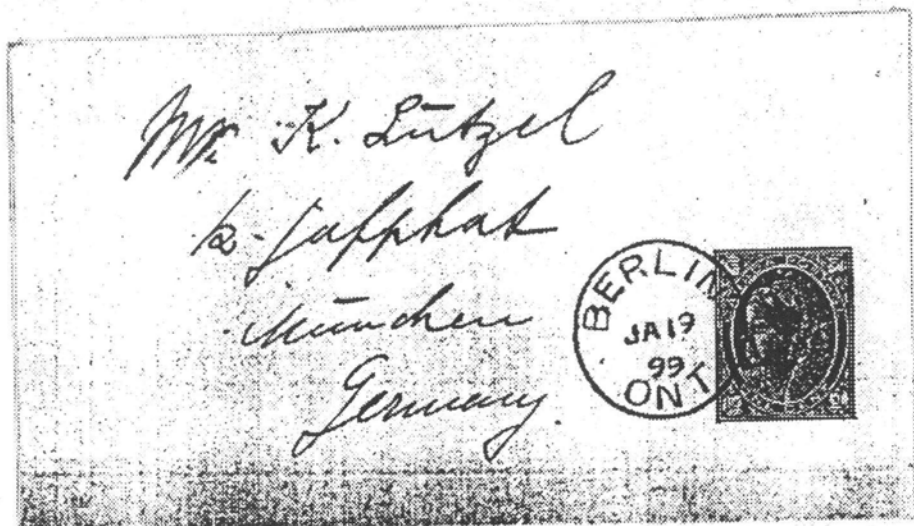 Mr. K. Lützel
München
Germany
BERLIN
JA 19
99
ONT